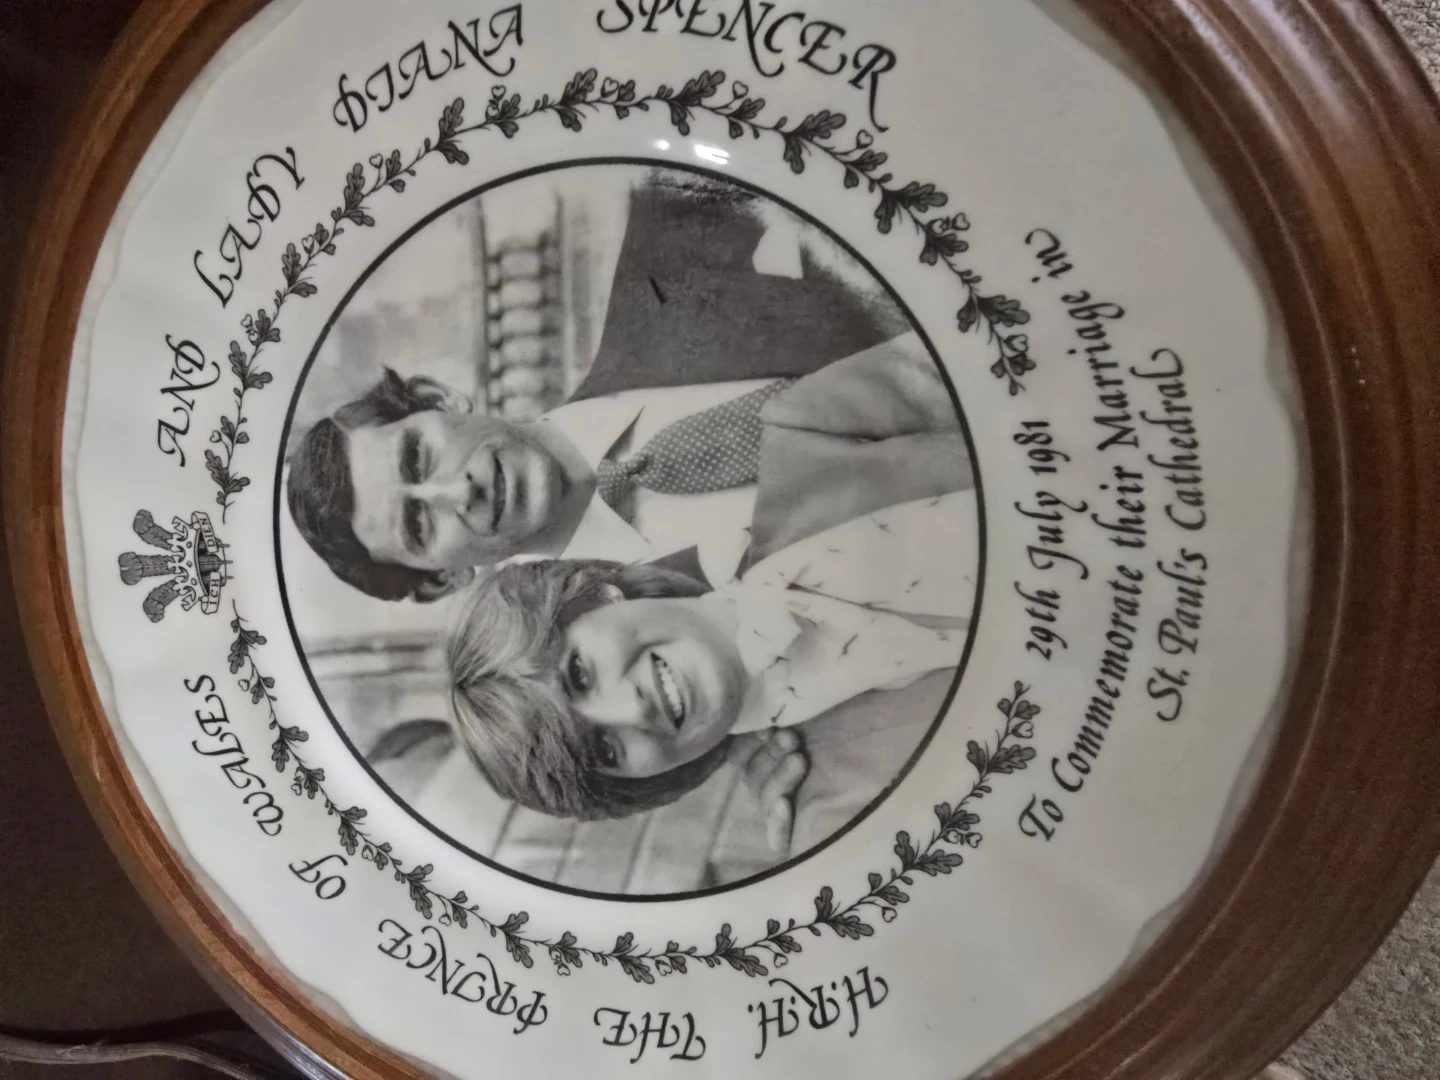 H.R.H. THE PRINCE OF WALES AND LADY DIANA SPENCER
ICH DIEN
29th July 1981
To Commemorate their Marriage in
St. Paul's Cathedral